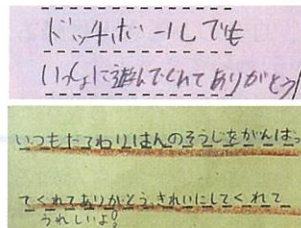 ドッチボールでも
いっしょに遊んでくれてありがとう!
いつもたてわりはんのそうじをがんばっ
てくれてありがとう。きれいにしてくれて
うれしいよ!